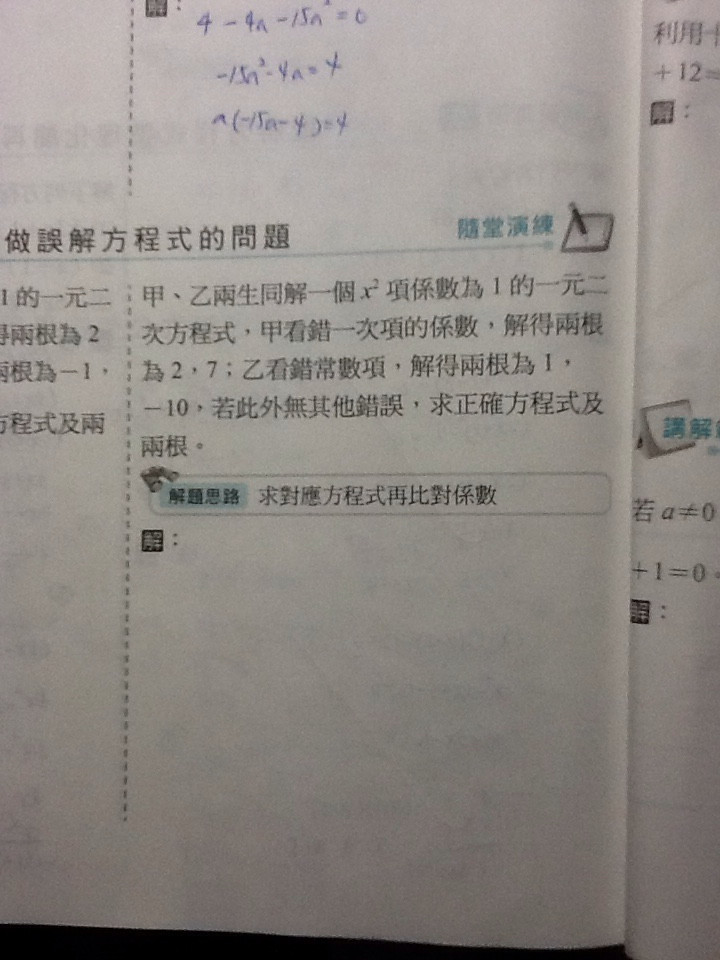 解：
4 - 4a - 15a² = 0
-15a² - 4a = 4
a(-15a - 4) = 4
做誤解方程式的問題
隨堂演練
1 的一元二
得兩根為 2
兩根為－1，
方程式及兩
甲、乙兩生同解一個 x² 項係數為 1 的一元二
次方程式，甲看錯一次項的係數，解得兩根
為 2，7；乙看錯常數項，解得兩根為 1，
－10，若此外無其他錯誤，求正確方程式及
兩根。
解題思路 求對應方程式再比對係數
解：
利用十
＋12＝
解：
講解
若 a≠0
＋1＝0。
解：